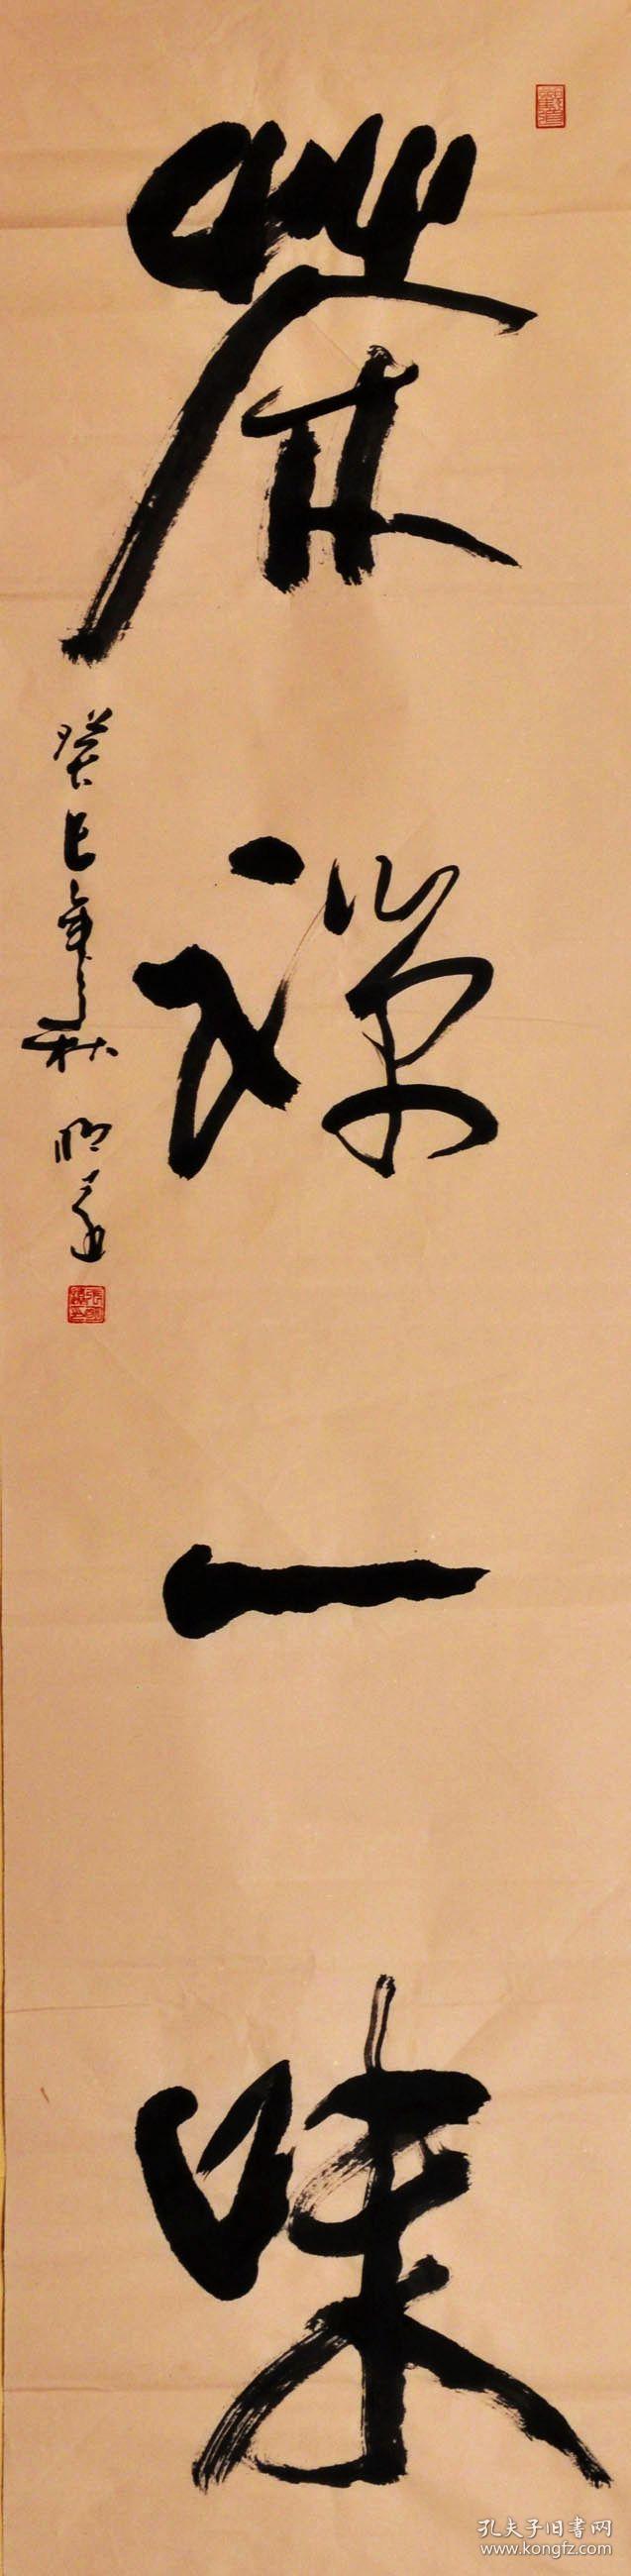 茶禅一味
癸巳年之秋 明远
孔夫子旧书网
www.kongfz.com